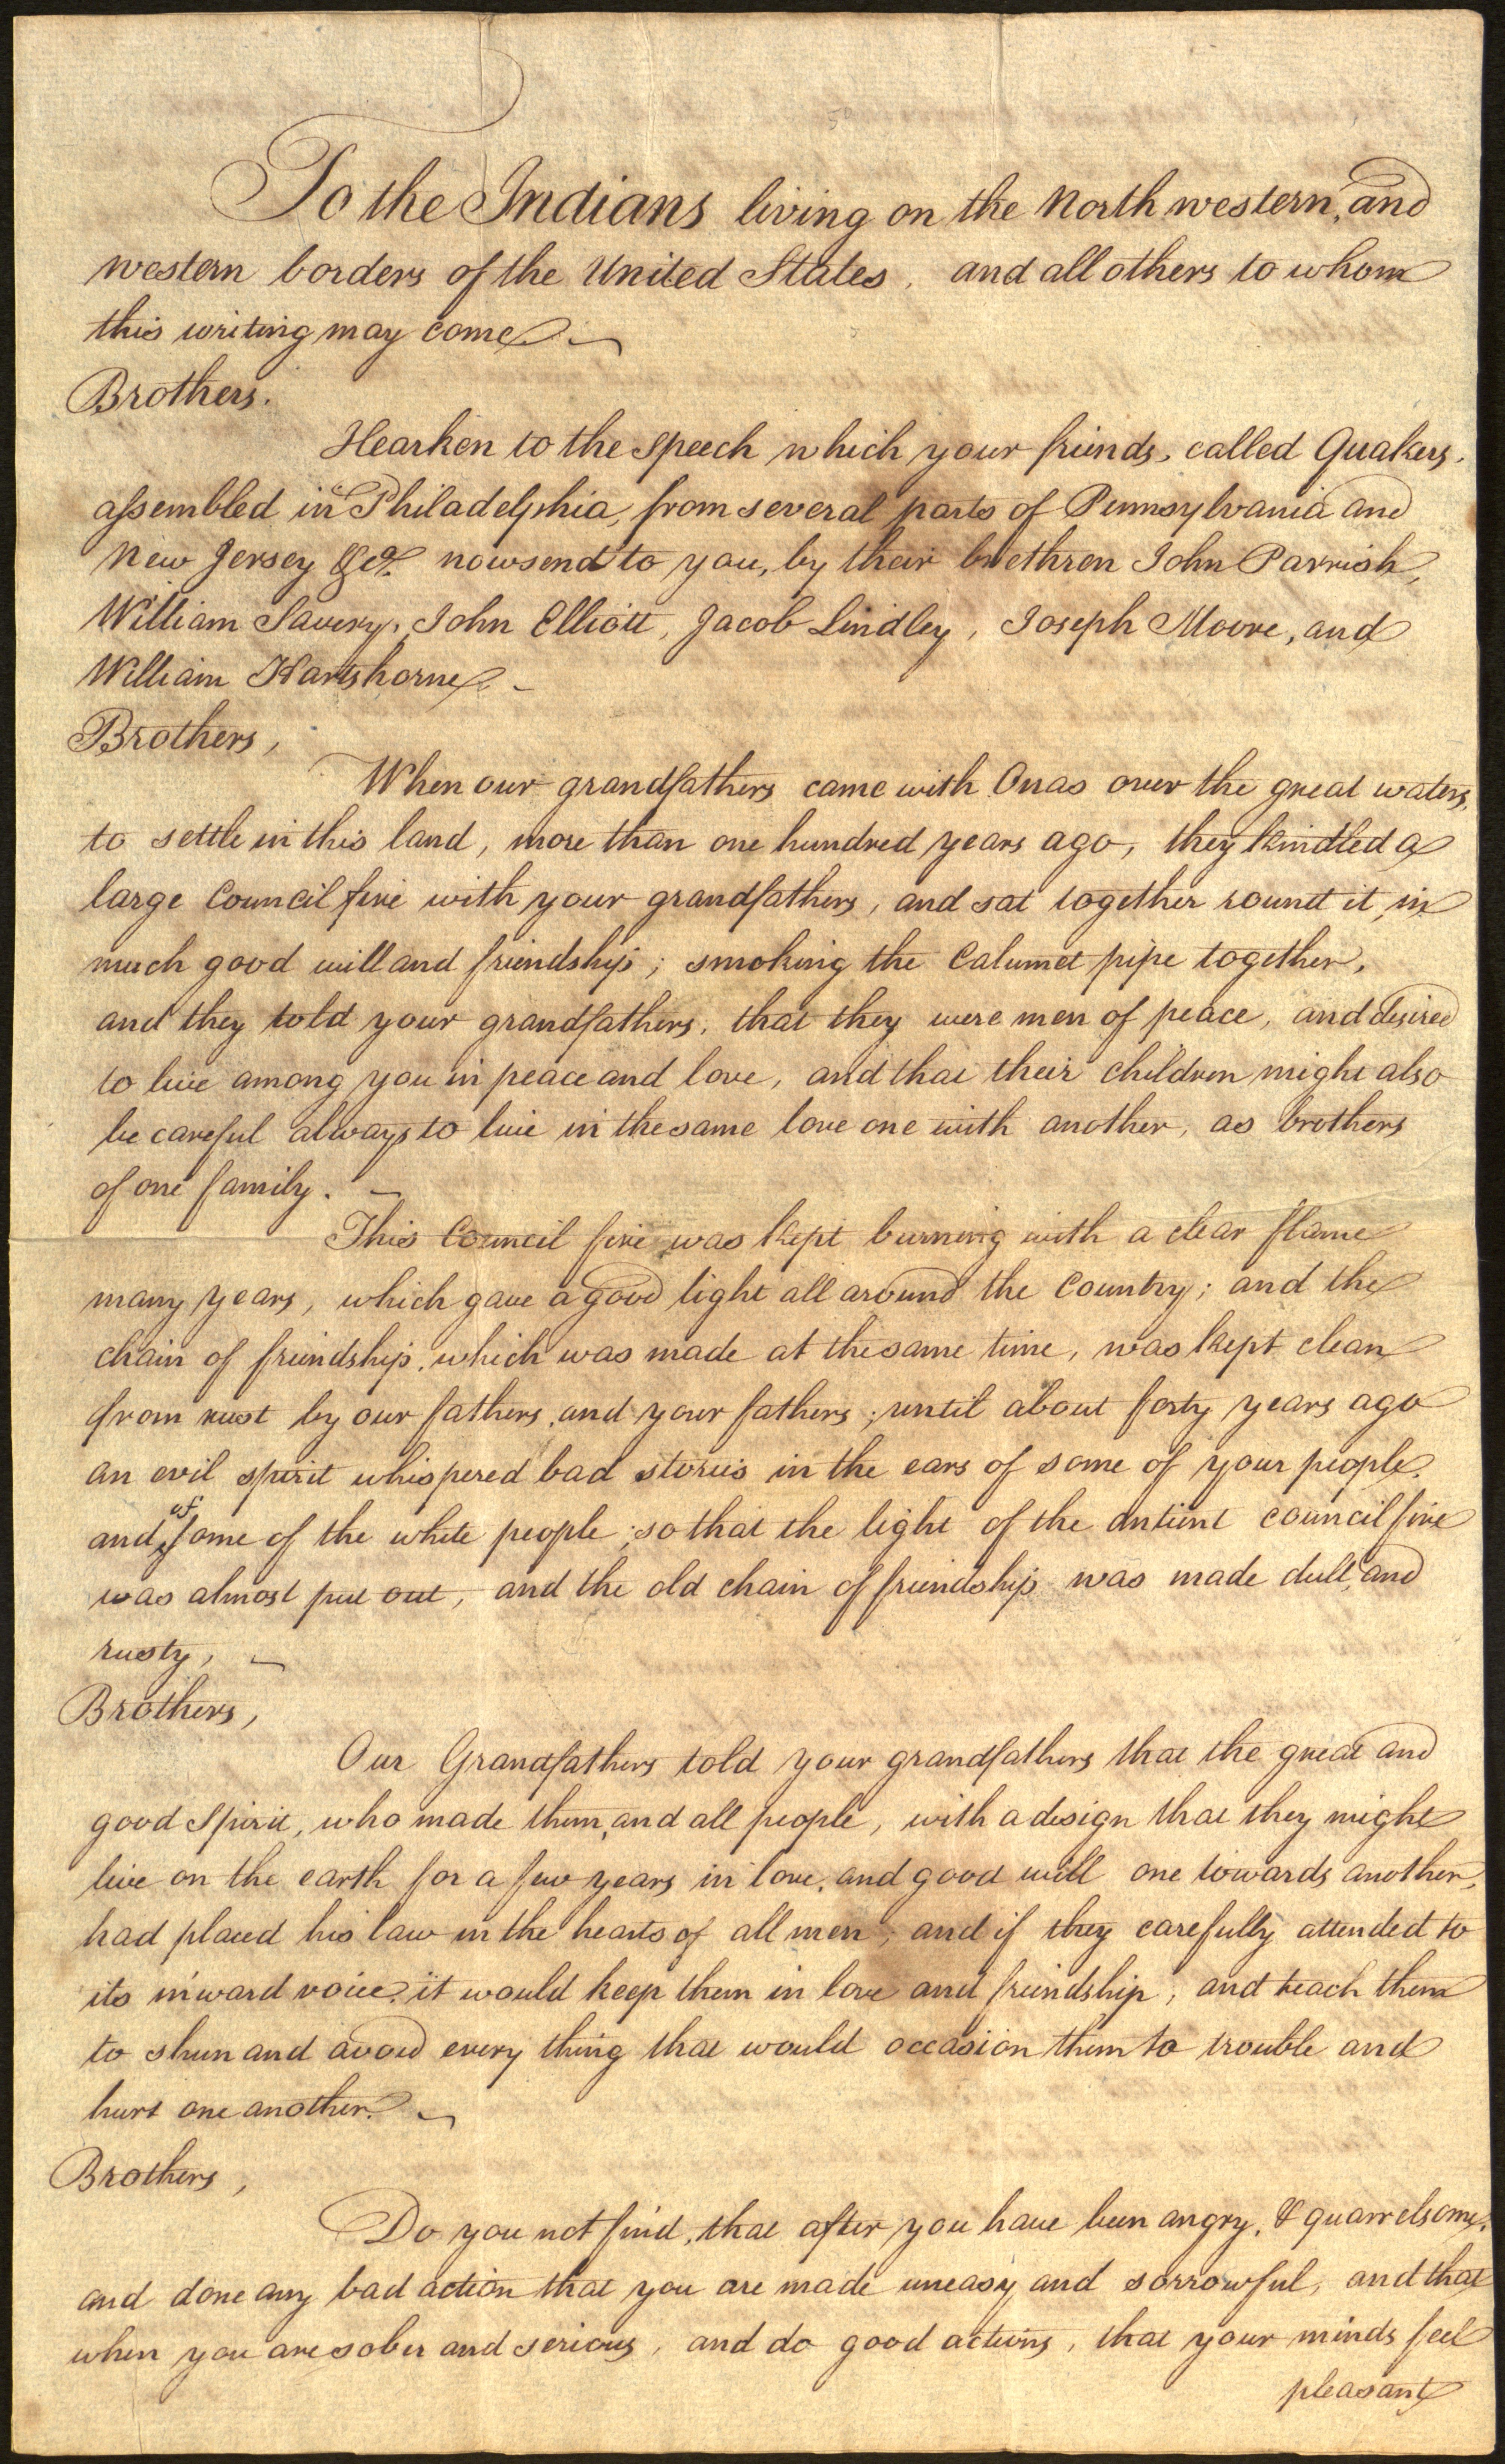 To the Indians living on the North western, and
western borders of the United States, and all others to whom
this writing may come. —
Brothers.
Hearken to the Speech which your friends, called Quakers,
assembled in Philadelphia, from several parts of Pennsylvania and
New Jersey &ca. now send to you, by their brethren John Parrish,
William Savery, John Elliott, Jacob Lindley, Joseph Moore, and
William Hartshorne. —
Brothers,
When our grandfathers came with Onas over the great waters,
to settle in this land, more than one hundred years ago, they kindled a
large Council fire with your grandfathers, and sat together round it in
much good will and friendship; smoking the Calumet pipe together,
and they told your grandfathers, that they were men of peace, and desired
to live among you in peace and love, and that their children might also
be careful always to live in the same love one with another, as brothers
of one family. —
This Council fire was kept burning with a clear flame
many years, which gave a good light all around the Country; and the
chain of friendship, which was made at the same time, was kept clean
from rust by our fathers, and your fathers; until about forty years ago
an evil spirit whispered bad stories in the ears of some of your people,
and of some of the white people; so that the light of the antient council fire
was almost put out, and the old chain of friendship was made dull and
rusty, —
Brothers,
Our Grandfathers told your grandfathers that the great and
good Spirit, who made them, and all people, with a design that they might
live on the earth for a few years in love, and good will one towards another,
had placed his law in the hearts of all men, and if they carefully attended to
its inward voice, it would keep them in love and friendship, and teach them
to shun and avoid every thing that would occasion them to trouble and
hurt one another. —
Brothers,
Do you not find, that after you have been angry, & quarrelsome,
and done any bad action that you are made uneasy and sorrowful, and that
when you are sober and serious, and do good actions, that your minds feel
pleasant